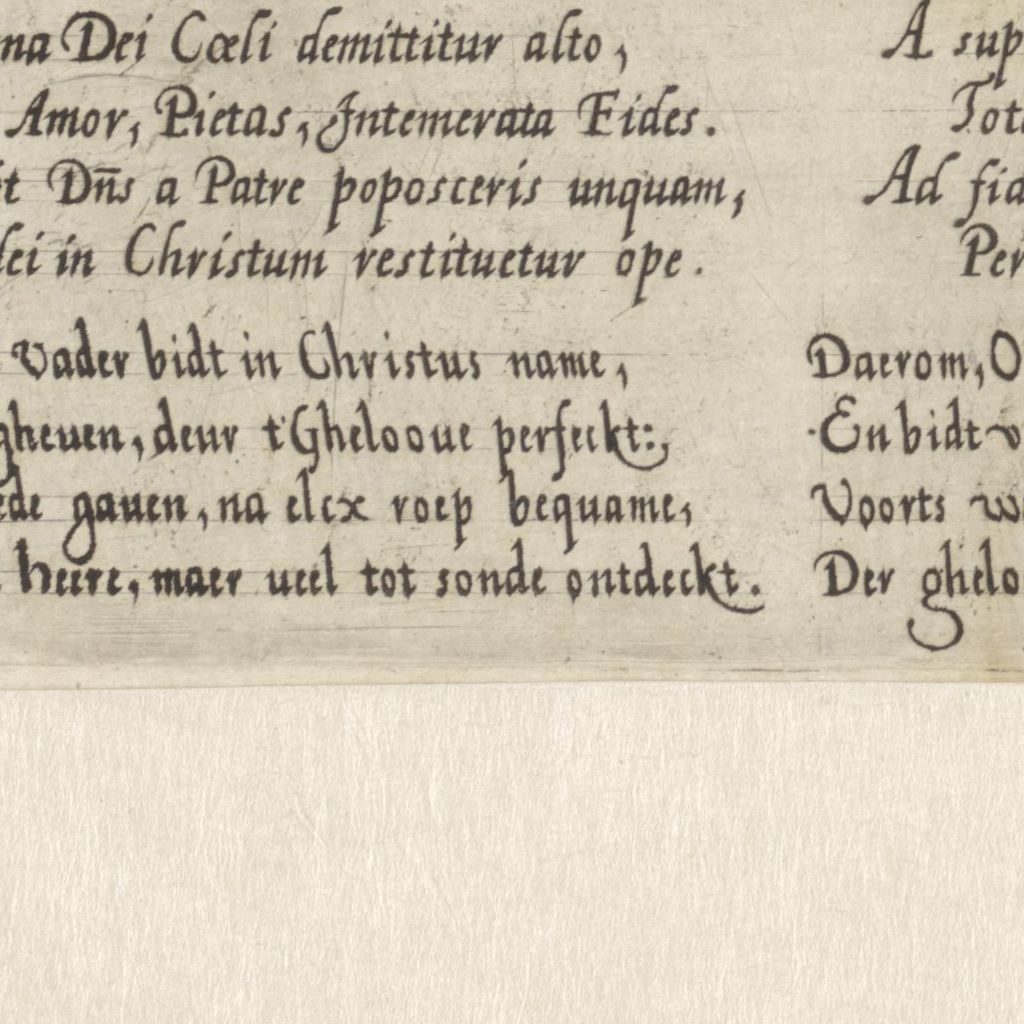 Dei Cœli demittitur alto,
Amor, Pietas, Intemerata Fides.
Dn̄s a Patre poposceris unquam,
in Christum restituetur ope.
Vader bidt in Christus name,
gheuen, deur t'Ghelooue perfeckt:,
gauen, na elcx roep bequame,
heere, maer ueel tot sonde ontdeckt.
A
Ad
Daerom,
En bidt
Voorts
Der